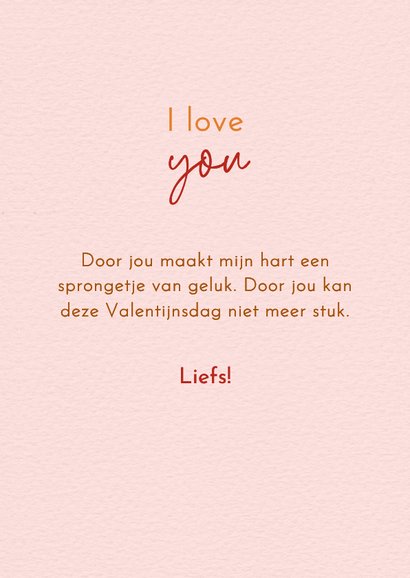 I love
you
Door jou maakt mijn hart een
sprongetje van geluk. Door jou kan
deze Valentijnsdag niet meer stuk.
Liefs!